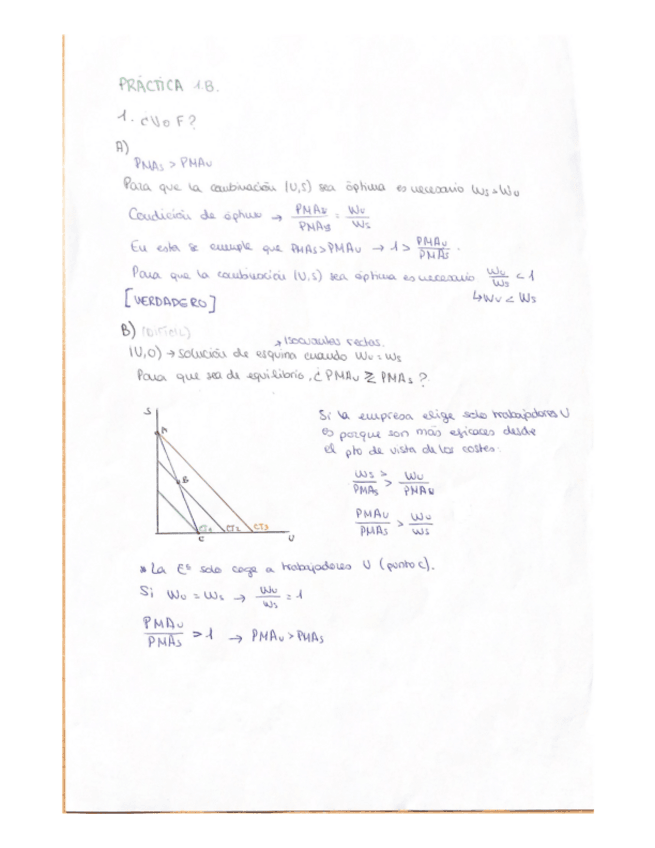 PRÁCTICA 1.B.
1. ¿V o F?
A)
PMAs > PMAu
Para que la combinación (U,S) sea óptima es necesario Ws > Wu
Condición de óptimo → PMAu/PMAs = Wu/Ws
En esta se cumple que PMAs > PMAu → 1 > PMAu/PMAs.
Para que la combinación (U,S) sea óptima es necesario Wu/Ws < 1
↳ Wu < Ws
[VERDADERO]
B) (DIFÍCIL)
→ Isocuantas rectas.
(U,0) → solución de esquina cuando Wu = Ws
Para que sea de equilibrio, ¿PMAu ≷ PMAs?
S
A
B
CT1 CT2 CT3
C U
Si la empresa elige solo trabajadores U
es porque son más eficaces desde
el pto de vista de los costes:
Ws/PMAs > Wu/PMAu
PMAu/PMAs > Wu/Ws
* La Eª solo coge a trabajadores U (punto C).
Si Wu = Ws → Wu/Ws = 1
PMAu/PMAs > 1 → PMAu > PMAs